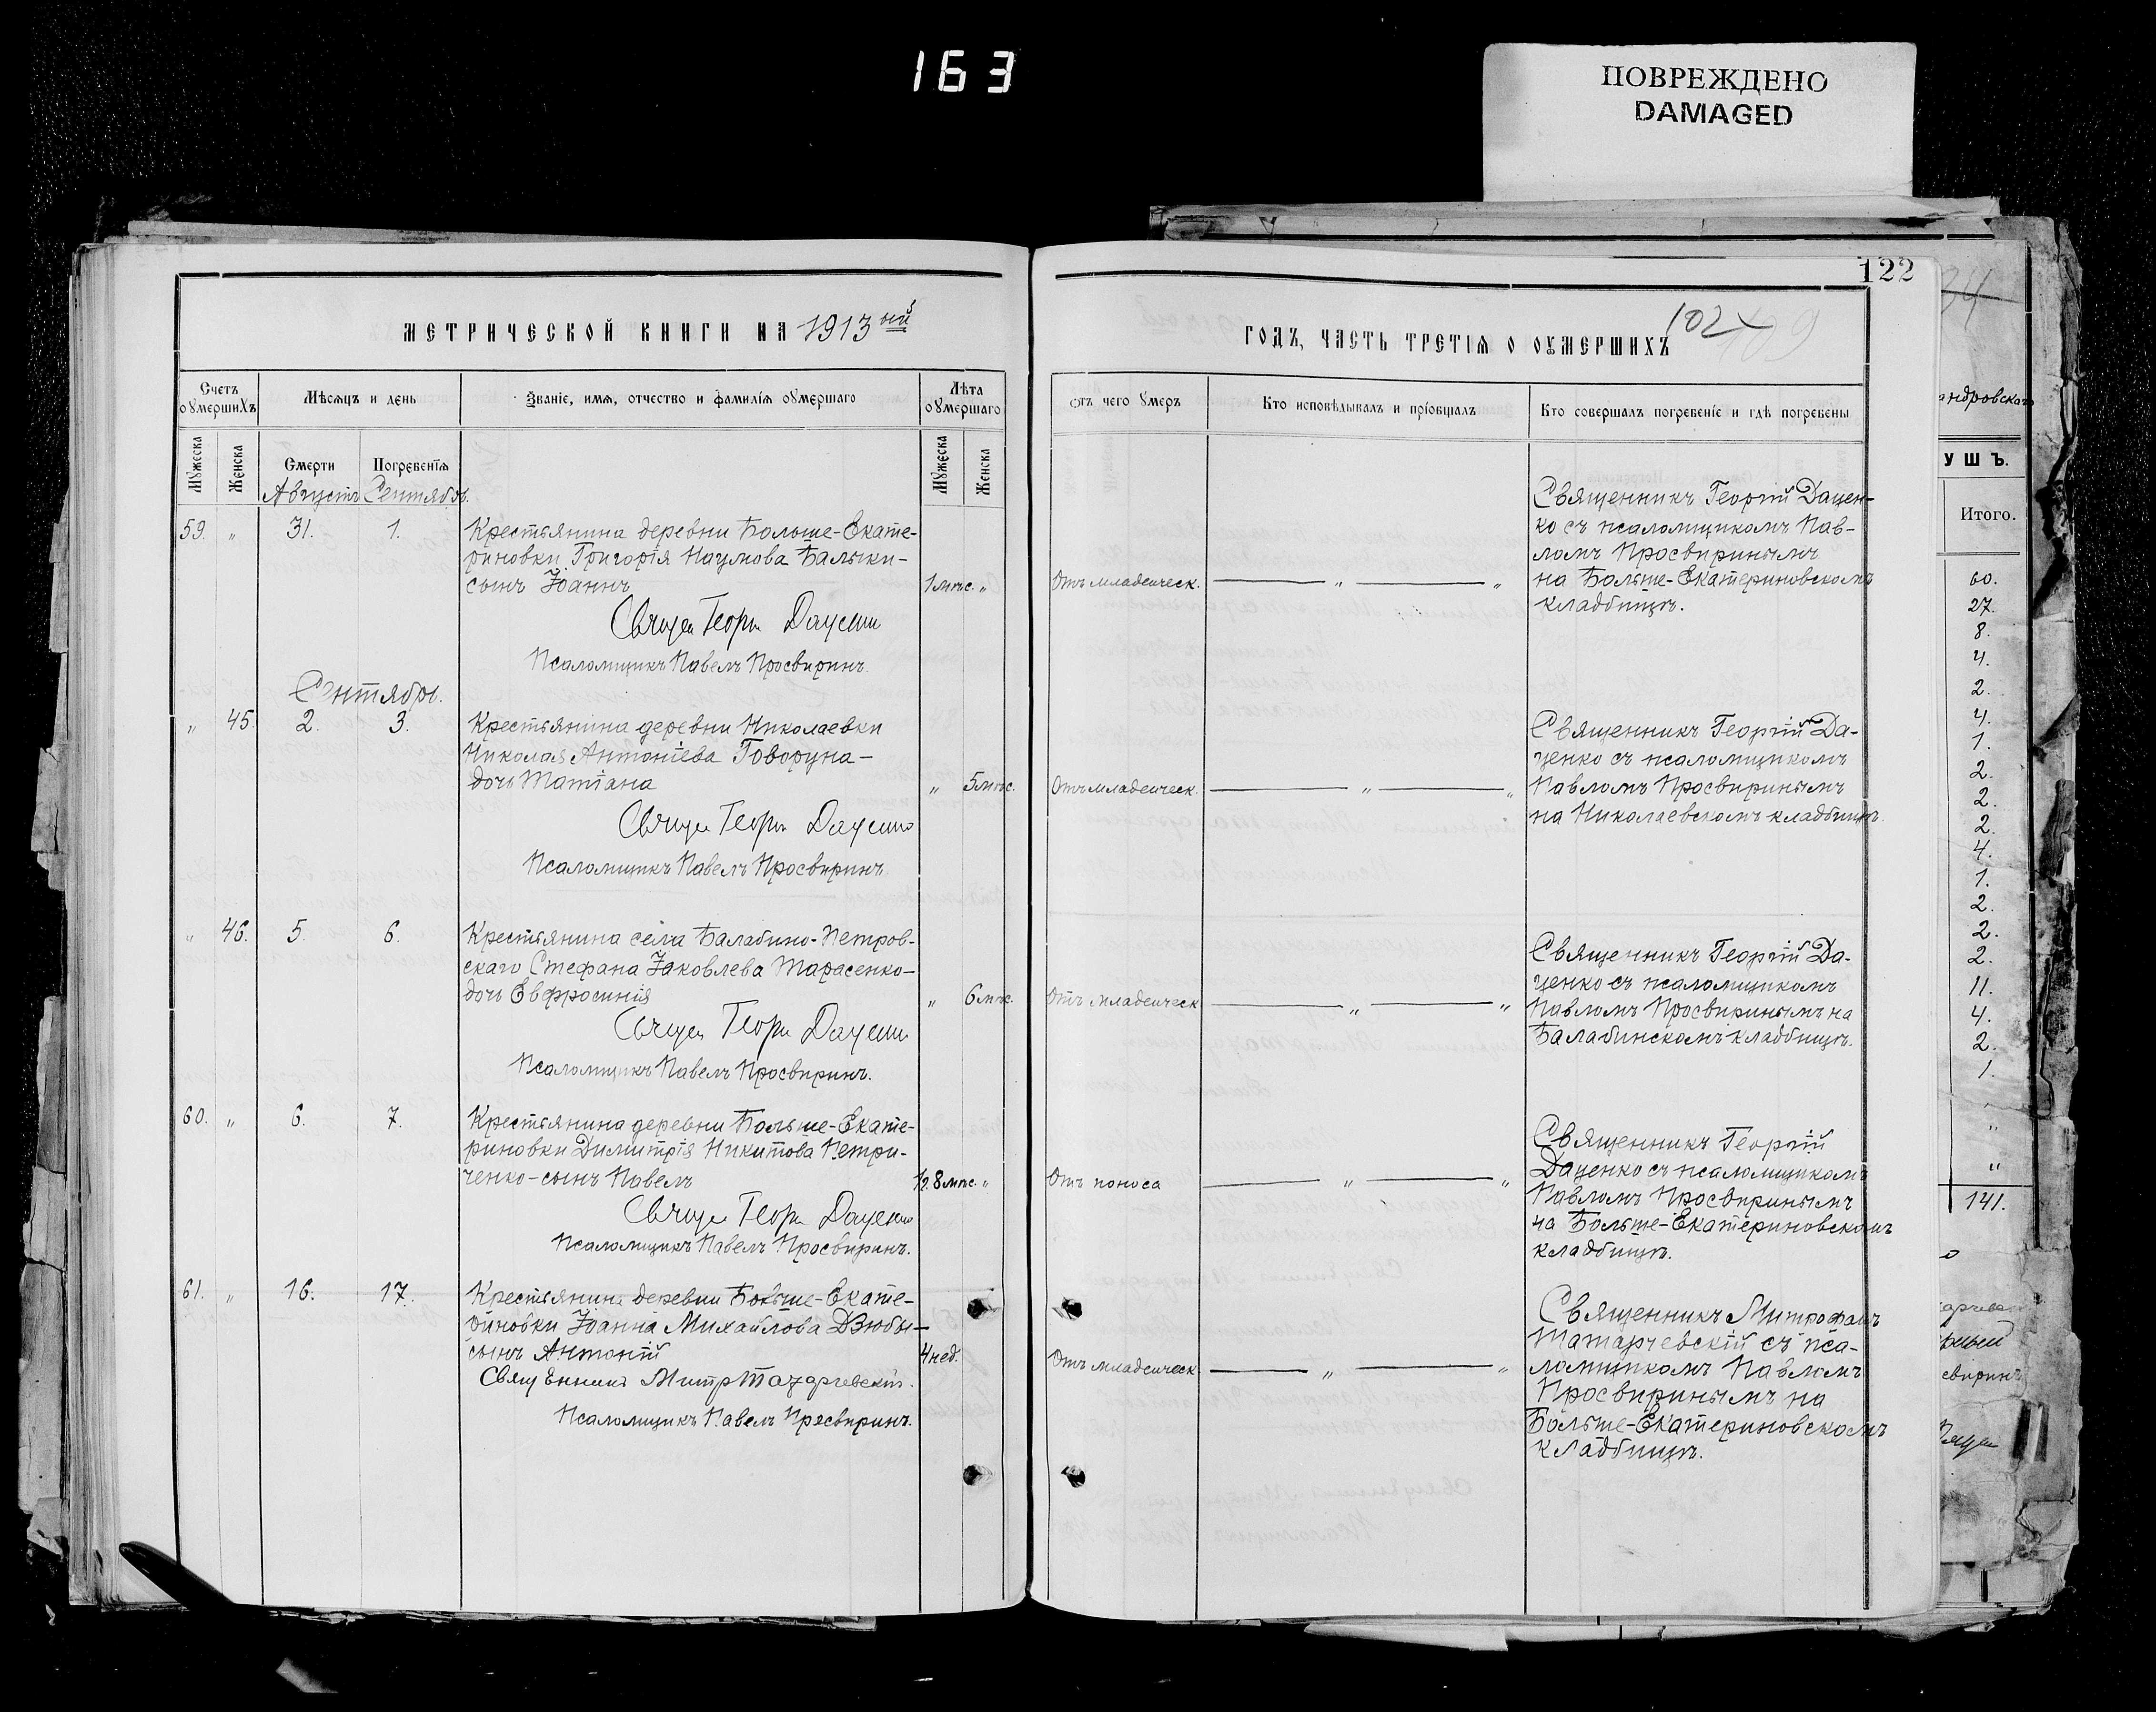 163
ПОВРЕЖДЕНО
DAMAGED
122
МЕТРИЧЕСКОЙ КНИГИ НА 1913ый
Счетъ оумершихъ
Мѣсяцъ и день
Званіе, имя, отчество и фамилія оумершаго
Лѣта оумершаго
Мужеска
Женска
Смерти
Погребенія
Мужеска
Женска
Августъ Сентябрь.
59. „ 31. 1. Крестьянина деревни Больше-Екате-
риновки Григорія Наумова Балыки-
сынъ Іоаннъ 1 мѣс. „
Псаломщикъ Павелъ Просвиринъ.
Сентябрь.
„ 45. 2. 3. Крестьянина деревни Николаевки
Николая Антоніева Говоруна-
дочь Татіана „ 5 мѣс.
Псаломщикъ Павелъ Просвиринъ
„ 46. 5. 6. Крестьянина села Балабино-Петров-
скаго Стефана Іаковлева Тарасенко-
дочь Евфросинія „ 6 мѣс.
Псаломщикъ Павелъ Просвиринъ.
60. „ 6. 7. Крестьянина деревни Больше-Екате-
риновки Димитрія Никитова Петри-
ченко-сынъ Павелъ 8 мѣс. „
Псаломщикъ Павелъ Просвиринъ.
61. „ 16. 17. Крестьянина деревни Больше-Екате-
риновки Іоанна Михайлова Дзюбы-
сынъ Антоній 4 нед.
Псаломщикъ Павелъ Просвиринъ.
ГОДЪ, ЧАСТЬ ТРЕТІЯ О ОУМЕРШИХЪ
102
109
Отъ чего умеръ
Кто исповѣдывалъ и пріобщалъ
Кто совершалъ погребеніе и гдѣ погребены
Священникъ Георгій Дацен-
ко съ псаломщикомъ Пав-
ломъ Просвиринымъ
Отъ младенческ. „ „ на Больше-Екатериновскомъ
кладбищѣ.
Священникъ Георгій Да-
ценко съ псаломщикомъ
Отъ младенческ. „ „ Павломъ Просвиринымъ
на Николаевскомъ кладбищѣ.
Священникъ Георгій Да-
ценко съ псаломщикомъ
Отъ младенческ „ „ Павломъ Просвиринымъ на
Балабинскомъ кладбищѣ.
Священникъ Георгій
Даценко съ псаломщикомъ
Отъ поноса „ „ Павломъ Просвиринымъ
на Больше-Екатериновскомъ
кладбищѣ.
Священникъ Митрофанъ
Татарчевскій съ пса-
Отъ младенческ. „ „ ломщикомъ Павломъ
Просвиринымъ на
Больше-Екатериновскомъ
кладбищѣ.
андровскаго
УШЪ.
Итого.
60.
27.
8.
4.
2.
4.
1.
2.
2.
2.
4.
1.
2.
2.
2.
11.
4.
2.
1.
„
„
„
141.
свиринъ